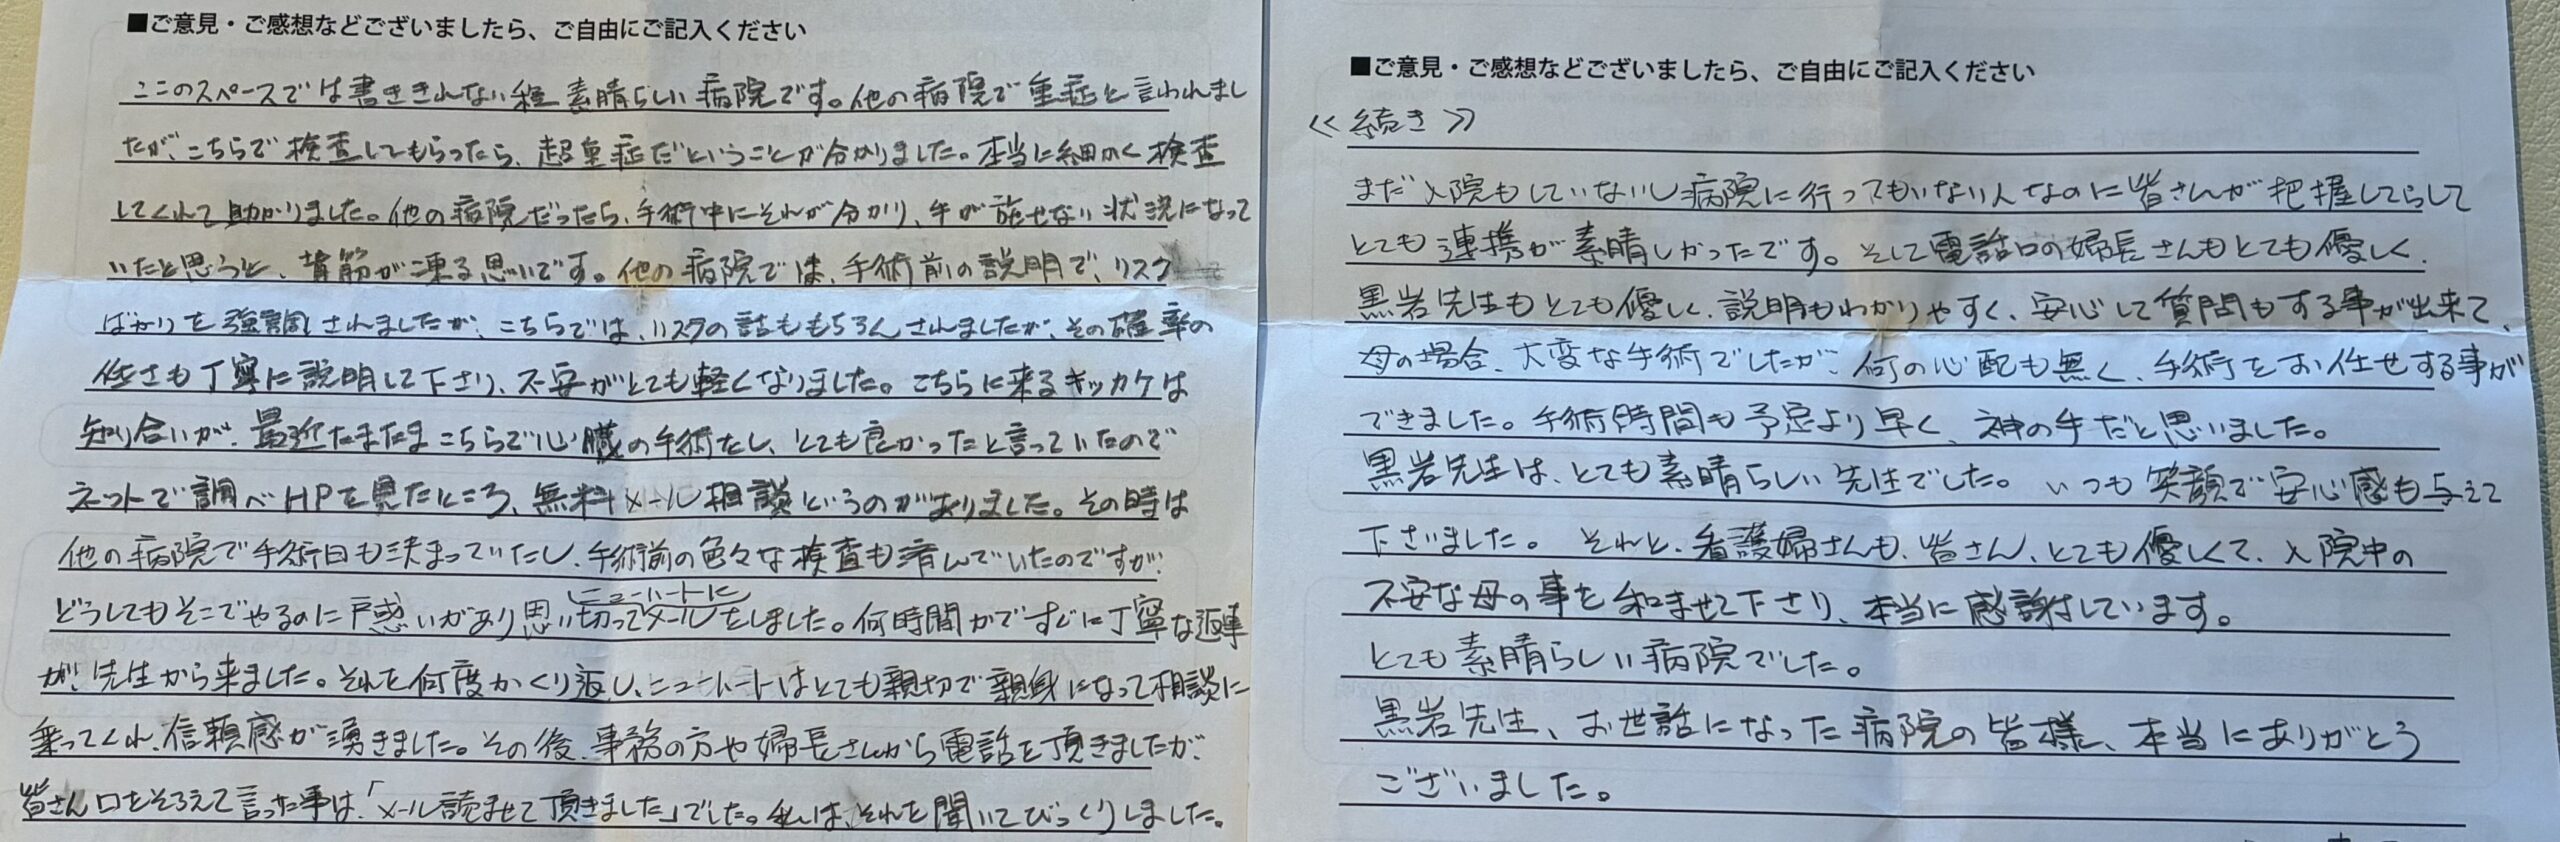 ■ご意見・ご感想などございましたら、ご自由にご記入ください
ここのスペースでは書ききれない程素晴らしい病院です。他の病院で重症と言われまし
たが、こちらで検査してもらったら、超重症だということが分かりました。本当に細かく検査
してくれて助かりました。他の病院だったら、手術中にそれが分かり、手が施せない状況になって
いたと思うと、背筋が凍る思いです。他の病院では、手術前の説明で、リスク
ばかりを強調されましたが、こちらでは、リスクの話ももちろんされましたが、その確率の
低さも丁寧に説明して下さり、不安がとても軽くなりました。こちらに来るキッカケは
知り合いが、最近たまたまこちらで心臓の手術をし、とても良かったと言っていたので
ネットで調べHPを見たところ、無料メール相談というのがありました。その時は
他の病院で手術日も決まっていたし、手術前の色々な検査も済んでいたのですが、
どうしてもそこでやるのに戸惑いがあり思い切ってニューハートにメールをしました。何時間かですぐに丁寧な返事
が、先生から来ました。それを何度かくり返し、ニューハートはとても親切で親身になって相談に
乗ってくれ、信頼感が湧きました。その後、事務の方や婦長さんから電話を頂きましたが、
皆さん口をそろえて言った事は、「メール読ませて頂きました」でした。私は、それを聞いてびっくりしました。
■ご意見・ご感想などございましたら、ご自由にご記入ください
≪続き≫
まだ入院もしていないし病院に行ってもいない人なのに皆さんが把握してらして
とても連携が素晴しかったです。そして電話口の婦長さんもとても優しく、
黒岩先生もとても優しく、説明もわかりやすく、安心して質問もする事が出来て、
母の場合、大変な手術でしたが、何の心配も無く、手術をお任せする事が
できました。手術時間も予定より早く、神の手だと思いました。
黒岩先生は、とても素晴らしい先生でした。いつも笑顔で安心感も与えて
下さいました。それと、看護婦さんも、皆さん、とても優しくて、入院中の
不安な母の事を和ませて下さり、本当に感謝しています。
とても素晴らしい病院でした。
黒岩先生、お世話になった病院の皆様、本当にありがとう
ございました。